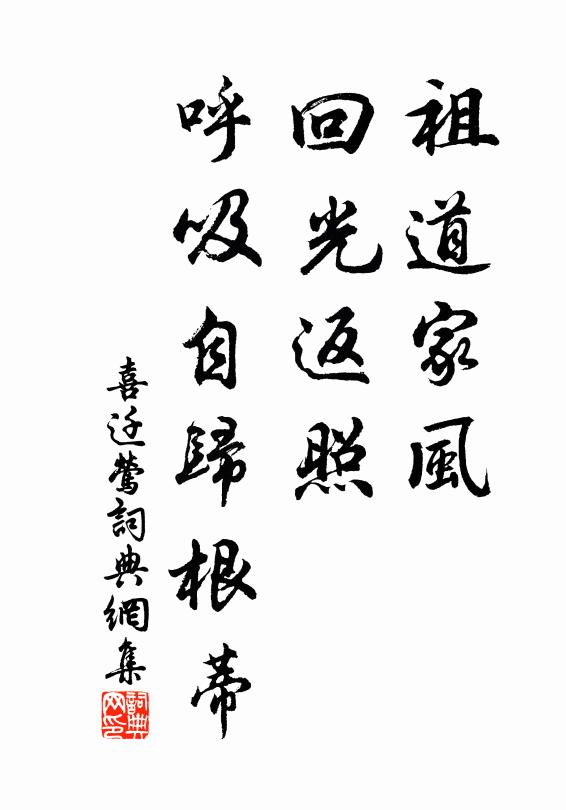 祖道家風
回光返照
呼吸自歸根蒂
喜迁鶯詞典網集
詞典网印